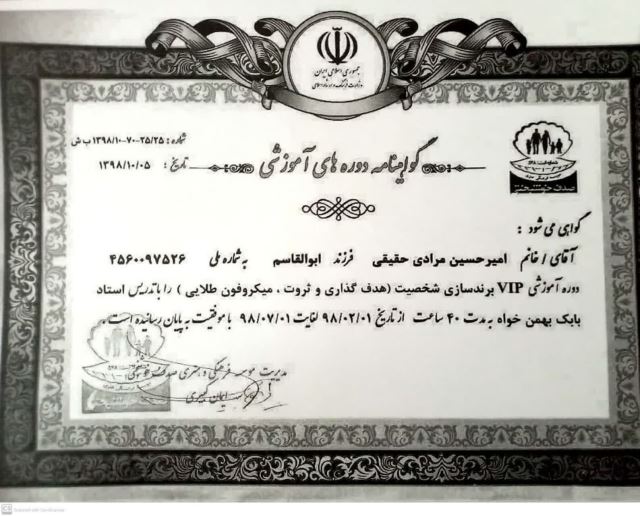 جمهوری اسلامی ایران
وزارت فرهنگ و ارشاد اسلامی
شماره : ۱۳۹۸/۱۰-۷۰-۲۵/۲۵ ب ش
تاریخ : ۱۳۹۸/۱۰/۰۵
گواهینامه دوره های آموزشی
صدف خوشبختی
گواهی می شود :
آقای / خانم امیرحسین مرادی حقیقی فرزند ابوالقاسم به شماره ملی ۴۵۶۰۰۹۷۵۲۶
دوره آموزشی VIP برندسازی شخصیت (هدف گذاری و ثروت ، میکروفون طلایی ) را با تدریس استاد
بابک بهمن خواه به مدت ۴۰ ساعت از تاریخ ۹۸/۰۲/۰۱ لغایت ۹۸/۰۷/۰۱ با موفقیت به پایان رسانیده است.
مدیریت موسسه فرهنگی و هنری صدف خوشبختی
ایمان کبیری
CS Scanned with CamScanner